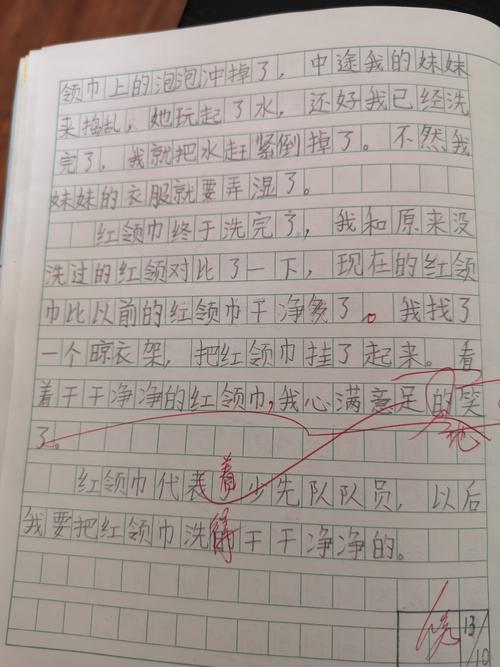 领巾上的泡泡冲掉了，中途我的妹妹
来捣乱，她玩起了水，还好我已经洗
完了，我就把水赶紧倒掉了。不然我
妹妹的衣服就要弄湿了。
红领巾终于洗完了，我和原来没
洗过的红领对比了一下，现在的红领
巾比以前的红领巾干净多了。我找了
一个晾衣架，把红领巾挂了起来。看
着干干净净的红领巾，我心满意足的笑
地
了。
着
红领巾代表少先队队员，以后
我要把红领巾洗得干干净净的。
13/10